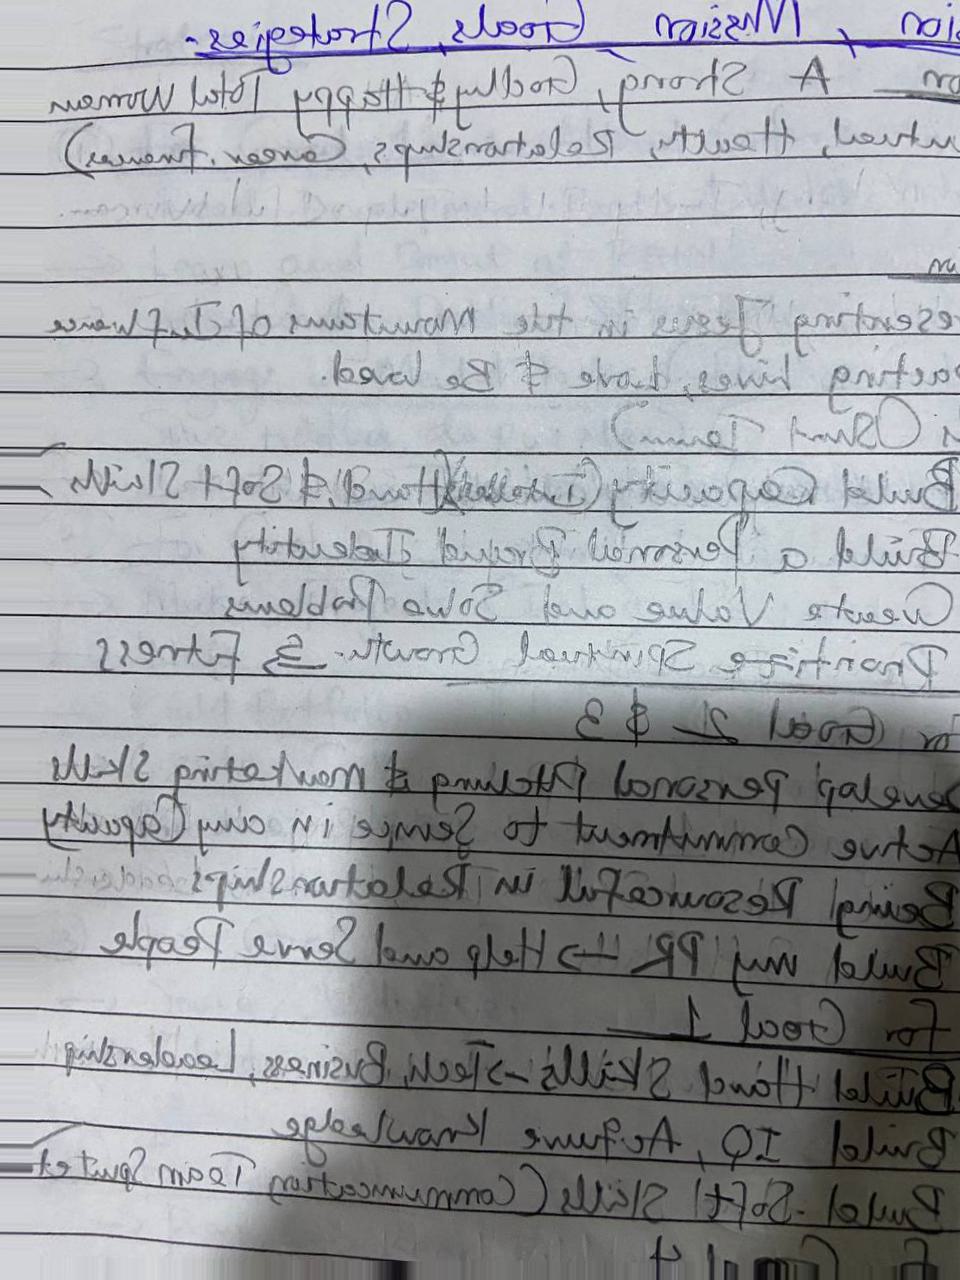 ion, Mission Goals, Strategies-
on A Strong, Godly & Happy Total Woman
ritual, Health, Relationships, Career, Finances)
on
resenting Jesus in the Mountains of Influence
pacting Lives, Love & Be loved.
(Short Term)
Build Capacity (Intellect, Hand, & Soft Skills
Build a Personal Brand Identity
Create Value and Solve Problems
Prioritize Spiritual Growth & Fitness
For Goal 2 & 3
Develop personal Pitching & Marketing Skills
Active Commitment to Service in any Capacity
Being Resourceful in Relationships
Build my PR → Help and Serve People
For Goal 1
Build Hand Skills → Tech, Business, Leadership
Build IQ, Acquire knowledge
Build Soft Skills (Communication Team
For Goal 4